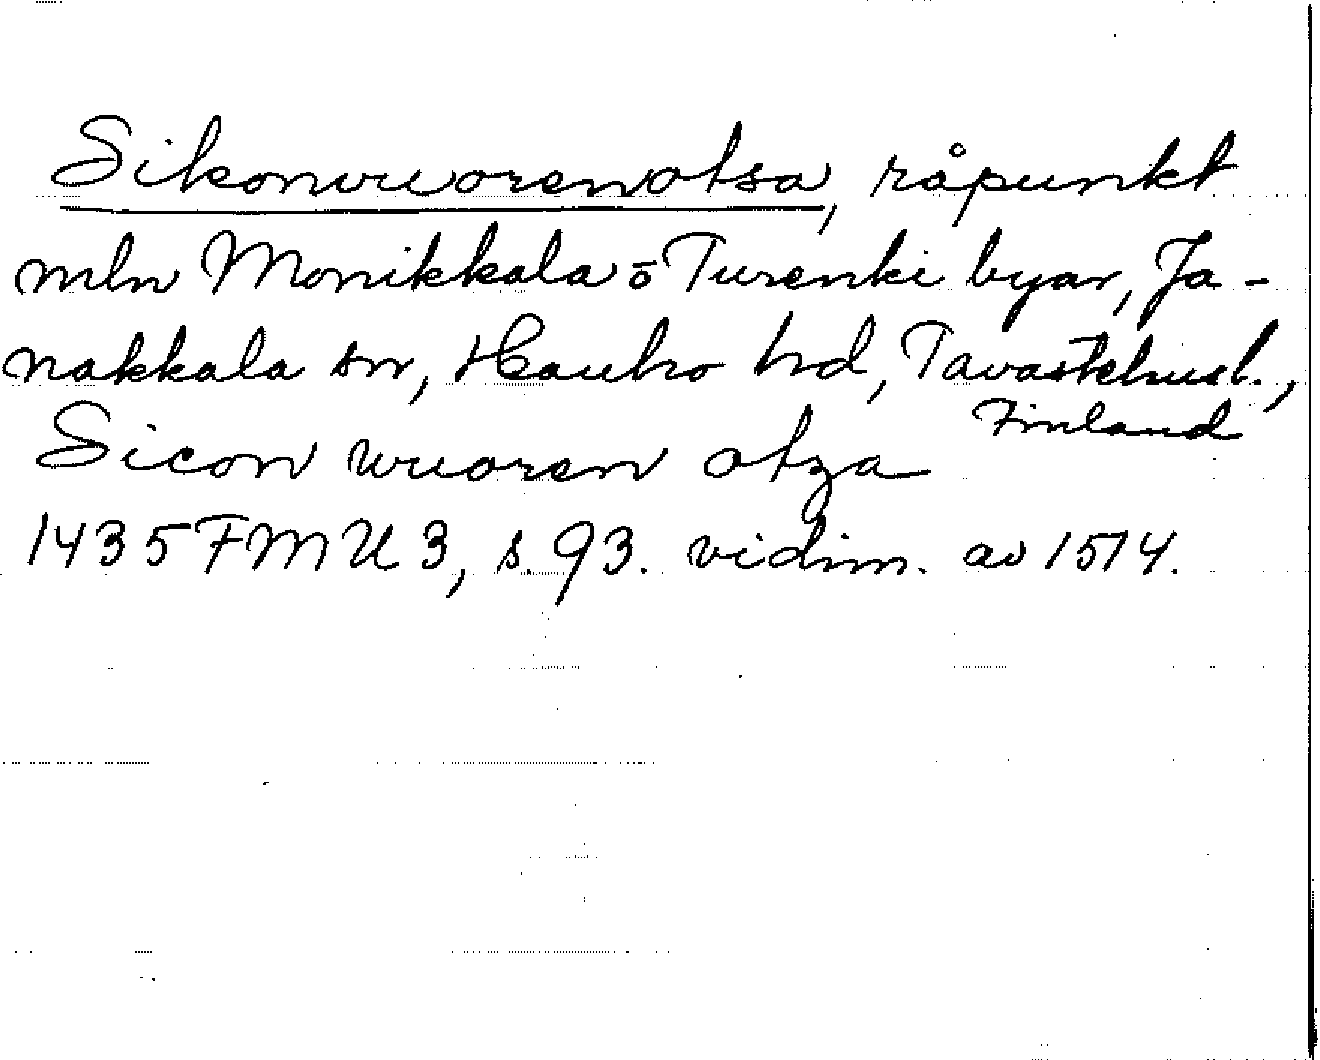 Sikonvuorenotsa, råpunkt
mln Monikkala o Turenki byar, Ja-
nakkala sn, Hauho hd, Tavastehusl.,
Finland
Sicon wuoren otza
1435 FMU 3, s. 93. vidim. av 1514.